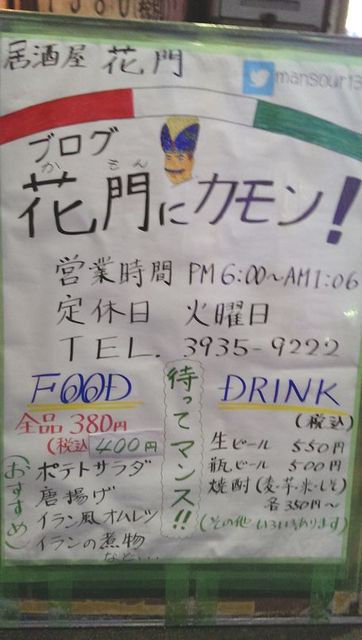 居酒屋 花門
mansour13
ブログ
か もん
花門にカモン!
営業時間 PM6:00~AM1:06
定休日 火曜日
TEL. 3935-9222
FOOD
全品 380円
(税込 400円
(おすすめ)
ポテトサラダ
唐揚げ
イラン風オムレツ
イランの煮物
など...
待ってマンス!!
DRINK
(税込)
生ビール 550円
瓶ビール 500円
焼酎(麦・芋・米・しそ)
各350円~
(その他いろいろあります)